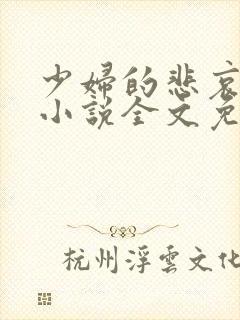 少婦的悲哀
小說全文免
杭州浮雲文化